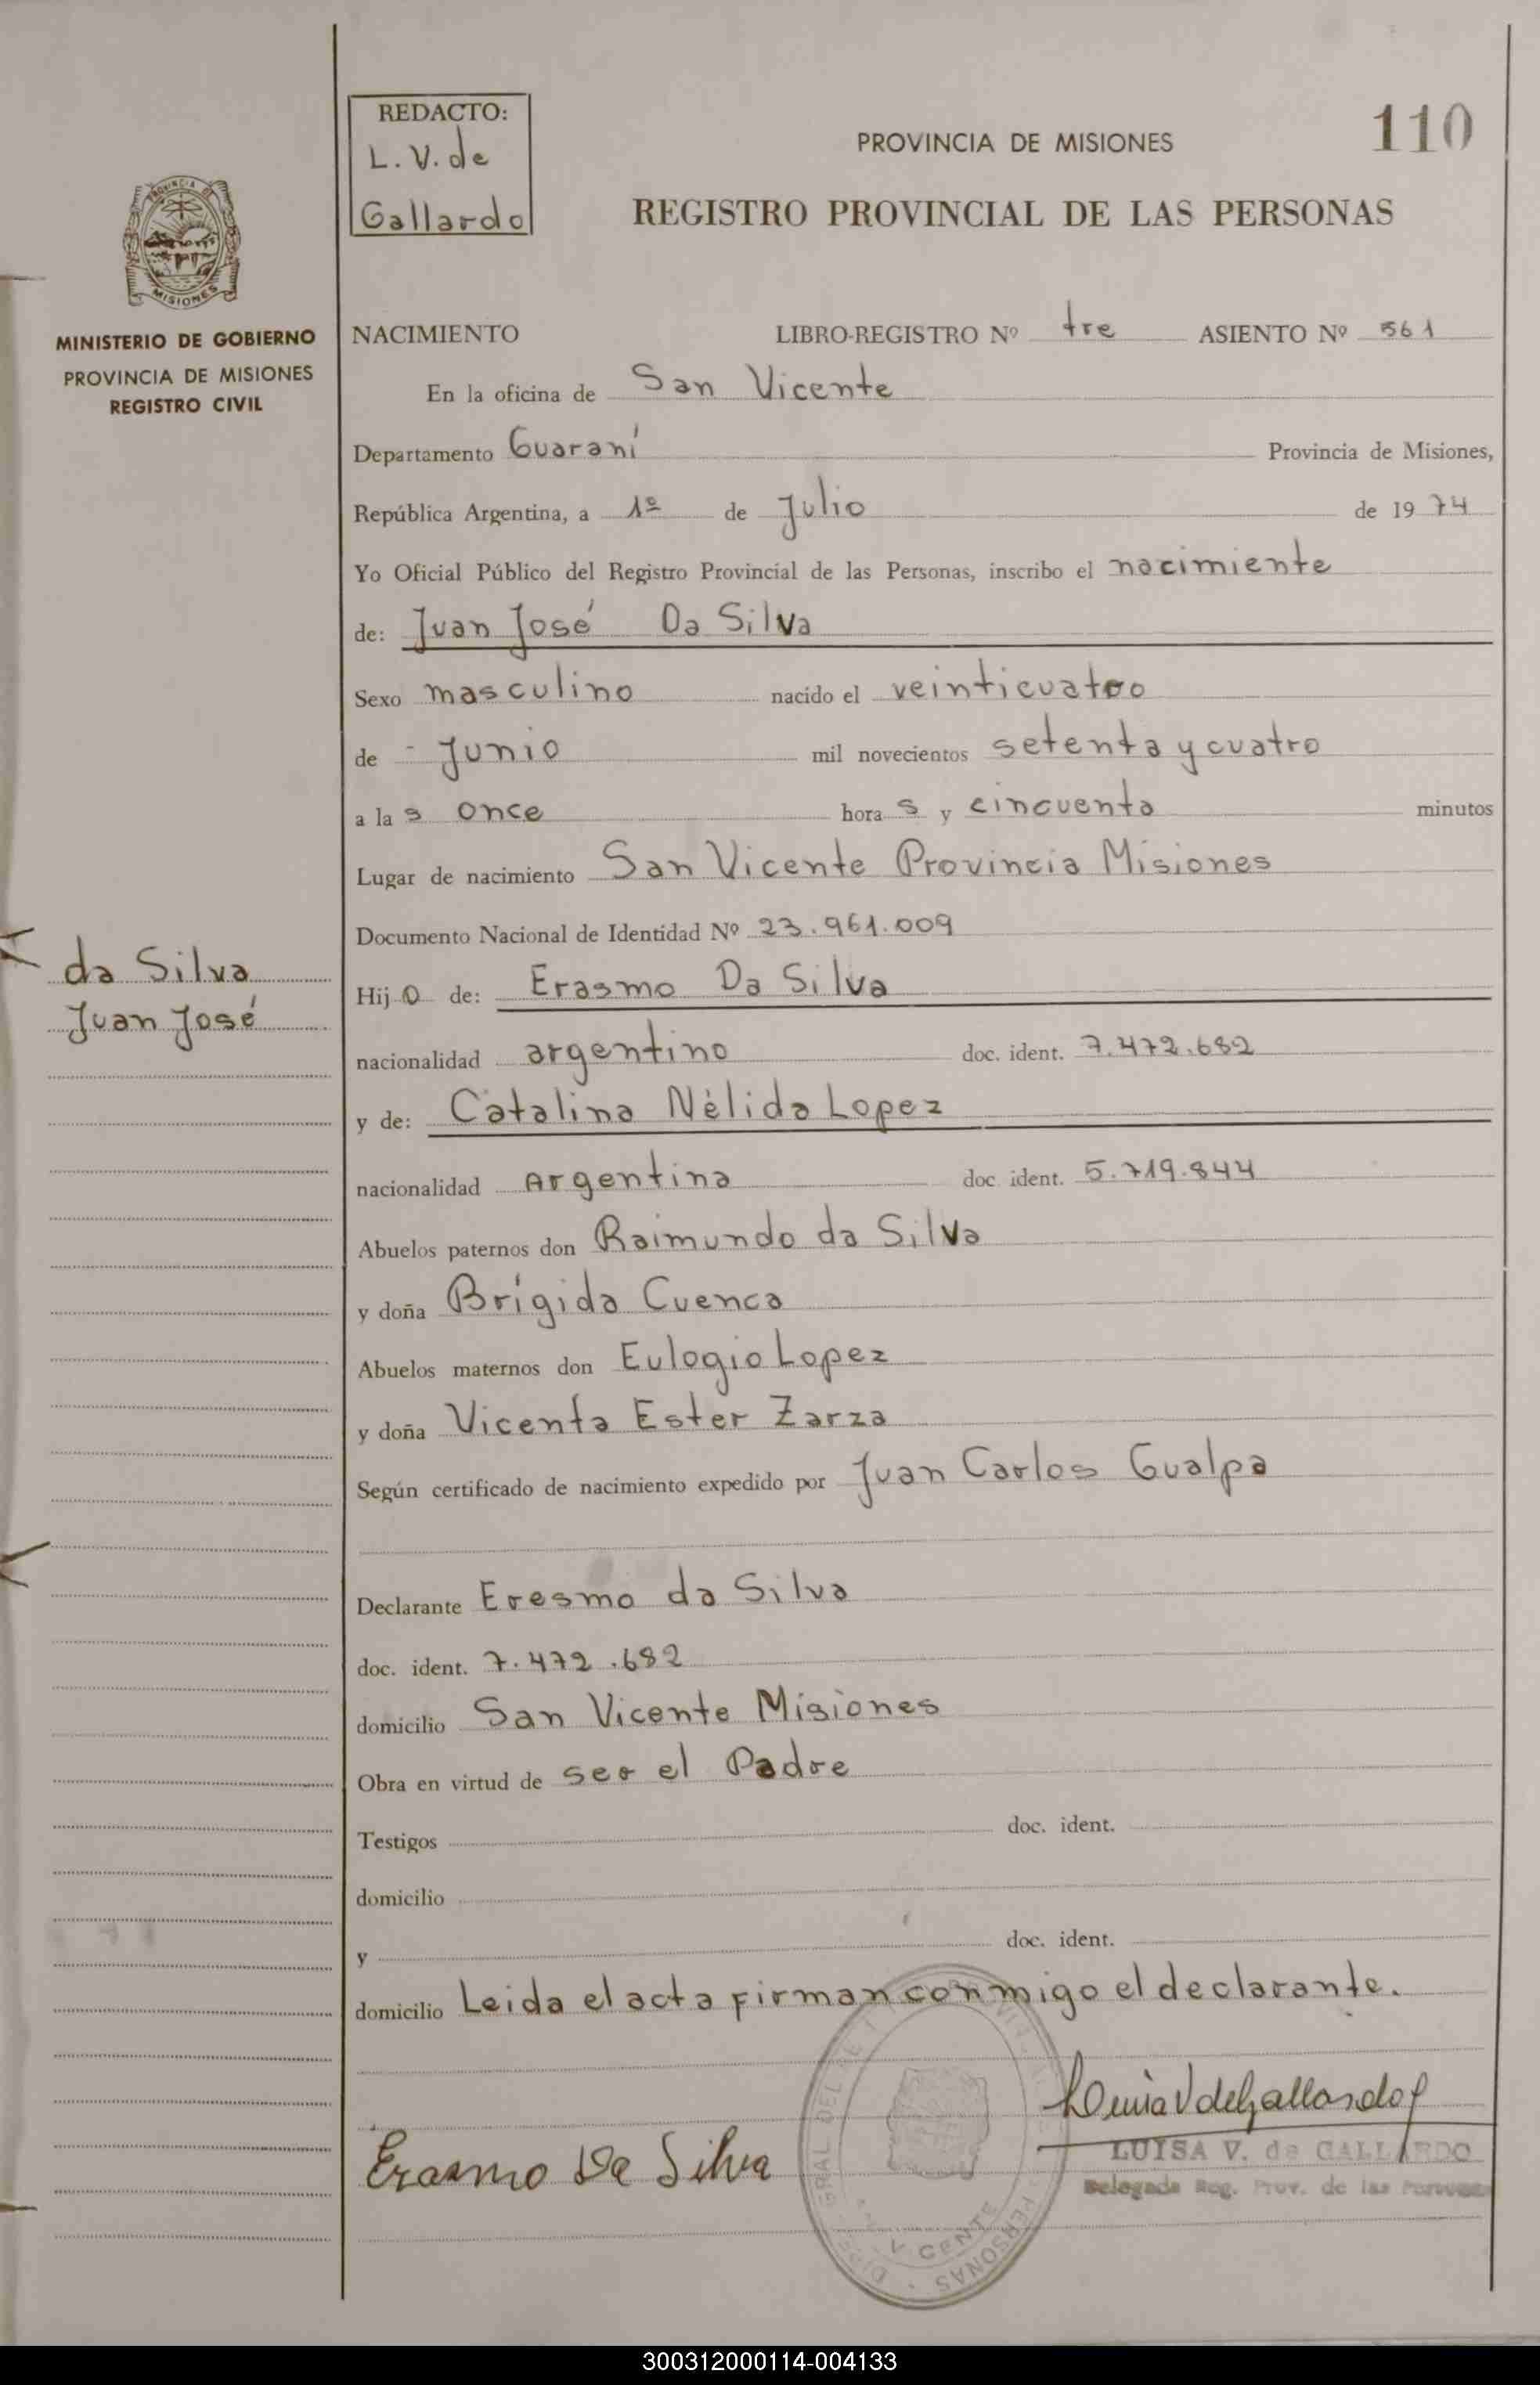 REDACTO:
L. V. de
Gallardo
PROVINCIA DE MISIONES
110
REGISTRO PROVINCIAL DE LAS PERSONAS
MISIONES
MINISTERIO DE GOBIERNO
PROVINCIA DE MISIONES
REGISTRO CIVIL
NACIMIENTO LIBRO-REGISTRO Nº tre ASIENTO Nº 561
En la oficina de San Vicente
Departamento Guaraní Provincia de Misiones,
República Argentina, a 1º de Julio de 1974
Yo Oficial Público del Registro Provincial de las Personas, inscribo el nacimiente
de: Juan José Da Silva
Sexo masculino nacido el veinticuatro
de - Junio mil novecientos setenta y cuatro
a las once horas y cincuenta minutos
Lugar de nacimiento San Vicente Provincia Misiones
Documento Nacional de Identidad Nº 23.961.009
da Silva
Juan José
Hijo de: Erasmo Da Silva
nacionalidad argentino doc. ident. 7.472.682
y de: Catalina Nélida Lopez
nacionalidad Argentina doc. ident. 5.719.844
Abuelos paternos don Raimundo da Silva
y doña Brígida Cuenca
Abuelos maternos don Eulogio Lopez
y doña Vicenta Ester Zarza
Según certificado de nacimiento expedido por Juan Carlos Gualpa
Declarante Eresmo da Silva
doc. ident. 7.472.682
domicilio San Vicente Misiones
Obra en virtud de ser el Padre
Testigos doc. ident.
domicilio
y doc. ident.
domicilio Leida el acta firman conmigo el declarante.
Luisa V de Gallardo
Erasmo Da Silva
LUISA V. de GALLARDO
Delegada Reg. Prov. de las Personas
300312000114-004133